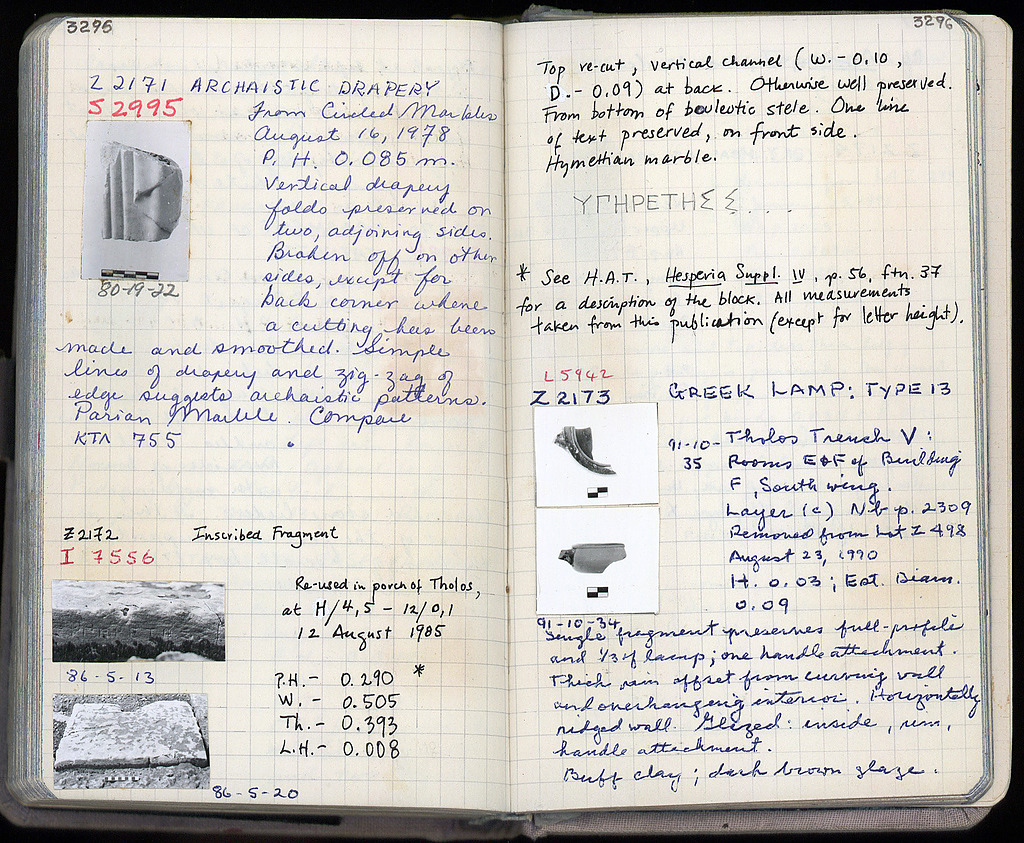 3295
Z 2171 ARCHAISTIC DRAPERY
S 2995
From Circled Marbles
August 16, 1978
P. H. 0.085 m.
Vertical drapery
folds preserved on
two, adjoining sides.
Broken off on other
sides, except for
back corner where
a cutting has been
80-19-22
made and smoothed. Simple
lines of drapery and zig-zag of
edge suggests archaistic patterns.
Parian Marble. Compare
KTΛ 755
Z 2172 Inscribed Fragment
I 7556
Re-used in porch of Tholos,
at H/4,5 - 12/0,1
12 August 1985
86-5-13
P.H.- 0.290 *
W. - 0.505
Th. - 0.393
L.H- 0.008
86-5-20
3296
Top re-cut, vertical channel (W.- 0.10,
D.- 0.09) at back. Otherwise well preserved.
From bottom of bouleutic stele. One line
of text preserved, on front side.
Hymettian marble.
ΥΠΗΡΕΤΗΣ Σ . . .
* See H.A.T., Hesperia Suppl. IV, p. 56, ftn. 37
for a description of the block. All measurements
taken from this publication (except for letter height).
L 5942
Z 2173 GREEK LAMP: TYPE 13
91-10-35
Tholos Trench V:
Rooms E&F of Building
F, South wing.
Layer (c) Nb p. 2309
Removed from Lot Z 498
August 23, 1990
H. 0.03; Est. Diam.
0.09
91-10-34
Single fragment preserves full-profile
and 1/3 of lamp; one handle attachment.
Thick rim offset from curving wall
and overhanging interior. Horizontally
ridged wall. Glazed: inside, rim,
handle attachment.
Buff clay; dark brown glaze.